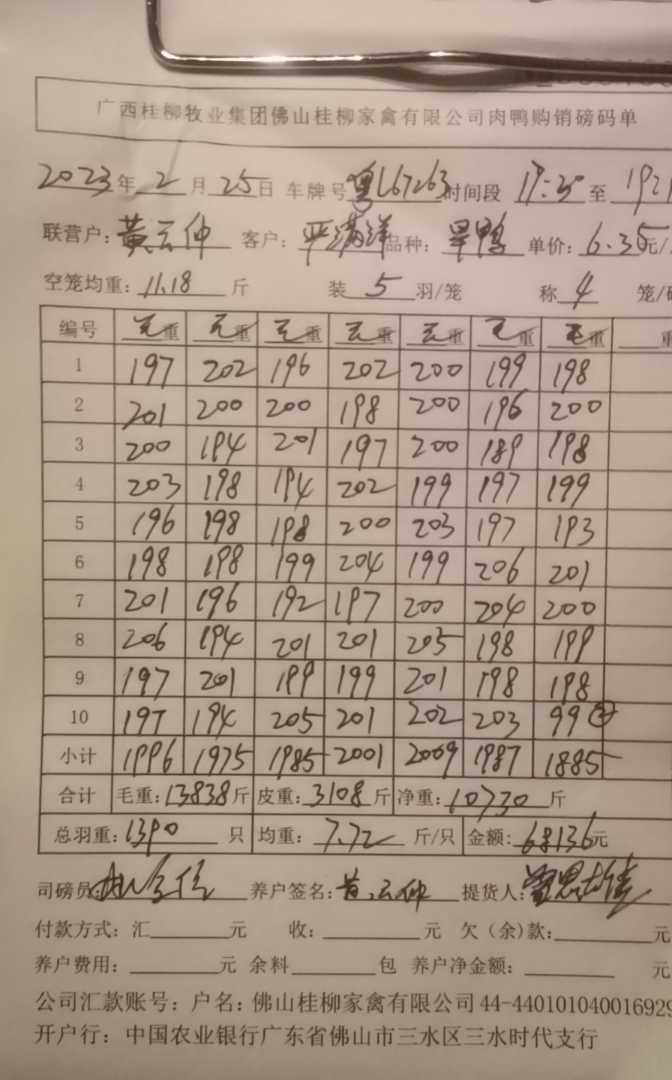 广西桂柳牧业集团佛山桂柳家禽有限公司肉鸭购销磅码单
2023年2月25日 车牌号粤L67263时间段 17:30至192
联营户:黄云仲 客户:严满洋品种:旱鸭 单价:6.35元/
空笼均重:11.18斤 装5羽/笼 称4笼/
编号 毛重 毛重 毛重 毛重 毛重 毛重 毛重 重
1 197 202 196 202 200 199 198
2 201 200 200 198 200 196 200
3 200 194 201 197 200 189 198
4 203 198 194 202 199 197 199
5 196 198 198 200 203 197 193
6 198 198 199 204 199 206 201
7 201 196 192 197 200 204 200
8 206 194 201 201 205 198 199
9 197 201 199 199 201 198 198
10 197 194 205 201 202 203 99
小计 1996 1975 1985 2001 2009 1987 1885
合计 毛重:13838斤 皮重:3108斤 净重:10730斤
总羽重:1390只 均重:7.72斤/只 金额:68136元
司磅员: 养户签名:黄云仲 提货人:
付款方式:汇元 收:元 欠(余)款:元
养户费用:元 余料包 养户净金额:元
公司汇款账号:户名:佛山桂柳家禽有限公司44-440101040016929
开户行:中国农业银行广东省佛山市三水区三水时代支行